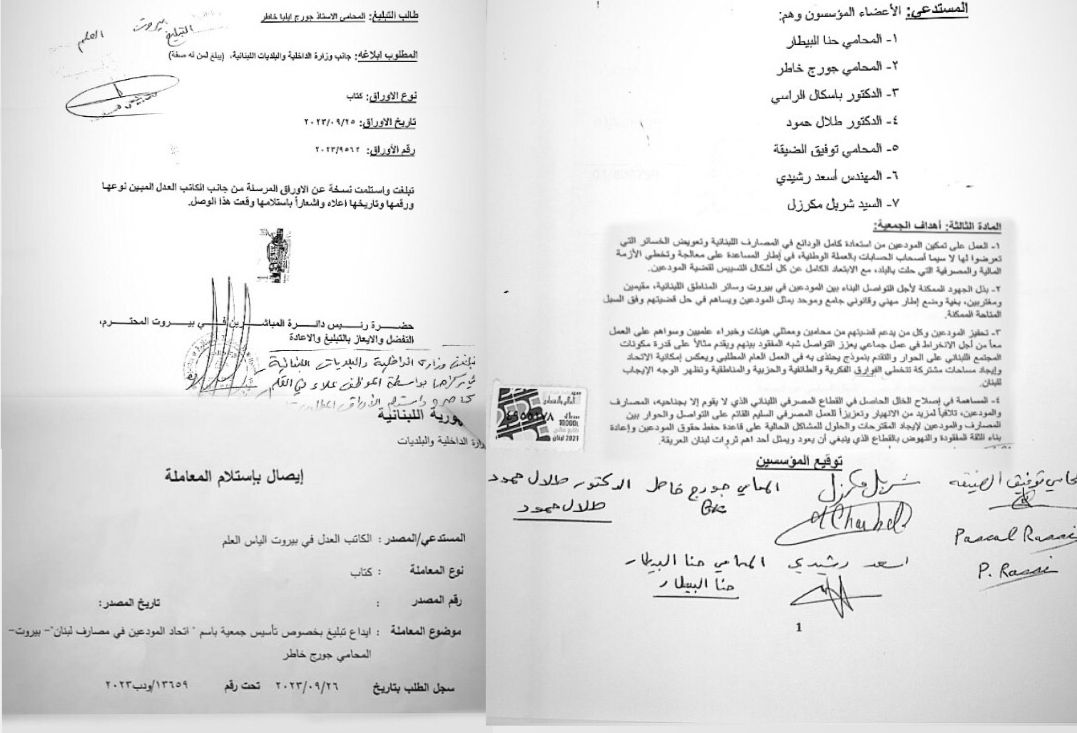 المستدعي: الأعضاء المؤسسون وهم:
١- المحامي حنا البيطار
٢- المحامي جورج خاطر
٣- الدكتور باسكال الراسي
٤- الدكتور طلال حمود
٥- المحامي توفيق الضيقة
٦- المهندس أسعد رشيدي
٧- السيد شربل مكرزل
المادة الثالثة: أهداف الجمعية:
١- العمل على تمكين المودعين من استعادة كامل الودائع في المصارف اللبنانية وتعويض الخسائر التي
تعرضوا لها لا سيما أصحاب الحسابات بالعملة الوطنية، في إطار المساعدة على معالجة وتخطي الأزمة
المالية والمصرفية التي حلت بالبلد، مع الابتعاد الكامل عن كل أشكال التسييس لقضية المودعين.
٢- بذل الجهود الممكنة لأجل التواصل البناء بين المودعين في بيروت وسائر المناطق اللبنانية، مقيمين
ومغتربين، بغية وضع إطار مهني وقانوني جامع وموحد يمثل المودعين ويساهم في حل قضيتهم وفق السبل
المتاحة الممكنة.
٣- تحفيز المودعين وكل من يدعم قضيتهم من محامين وممثلي هيئات وخبراء علميين وسواهم على العمل
معاً من أجل الانخراط في عمل جماعي يعزز التواصل شبه المفقود بينهم ويقدم مثالاً على قدرة مكونات
المجتمع اللبناني على الحوار والتقدم بنموذج يحتذى به في العمل المطلبي ويعكس إمكانية الاتحاد
وإيجاد مساحات مشتركة تتخطى الفوارق الفكرية والطائفية والحزبية والمناطقية وتظهر الوجه الإيجاب
للبنان.
٤- المساهمة في إصلاح الخلل الحاصل في القطاع المصرفي اللبناني الذي لا يقوم إلا بجناحيه، المصارف
والمودعين، تلافياً لمزيد من الانهيار وتعزيزاً للعمل المصرفي السليم القائم على التواصل والحوار بين
المصارف والمودعين لإيجاد المقترحات والحلول للمشاكل الحالية على قاعدة حفظ حقوق المودعين وإعادة
بناء الثقة المفقودة والنهوض بالقطاع الذي ينبغي أن يعود ويمثل أحد اهم ثروات لبنان العريقة.
10000L
لبنان 2021
توقيع المؤسسين
المحامي توفيق الضيقة
شربل مكرزل
المحامي جورج خاطر
الدكتور طلال حمود
طلال حمود
Charbel
Pascal Rassi
P. Rassi
اسعد رشيدي
المحامي حنا البيطار
حنا البيطار
1
طالب التبليغ: المحامي الاستاذ جورج ايليا خاطر
بيروت
التبليغ
العلم
المطلوب ابلاغه: جانب وزارة الداخلية والبلديات اللبنانية، (يبلغ لمن له صفة)
نوع الاوراق: كتاب
تاريخ الاوراق: ٢٠٢٣/٠٩/٢٥
رقم الأوراق: ٢٠٢٣/٩٥٦٢
تبلغت واستلمت نسخة عن الاوراق المرسلة من جانب الكاتب العدل المبين نوعها
ورقمها وتاريخها اعلاه واشعاراً باستلامها وقعت هذا الوصل.
حضرة رئيس دائرة المباشرين في بيروت المحترم،
التفضل والايعاز بالتبليغ والاعادة
وزارة الداخلية والبلديات اللبنانية
بواسطة الموظف علاء
ورية اللبنانية
ارة الداخلية والبلديات
إيصال بإستلام المعاملة
المستدعي/المصدر : الكاتب العدل في بيروت الياس العلم
نوع المعاملة : كتاب
رقم المصدر : تاريخ المصدر:
موضوع المعاملة : ايداع تبليغ بخصوص تأسيس جمعية باسم " اتحاد المودعين في مصارف لبنان"- بيروت-
المحامي جورج خاطر
سجل الطلب بتاريخ ٢٠٢٣/٠٩/٢٦ تحت رقم ١٣٦٥٩/ودب٢٠٢٣